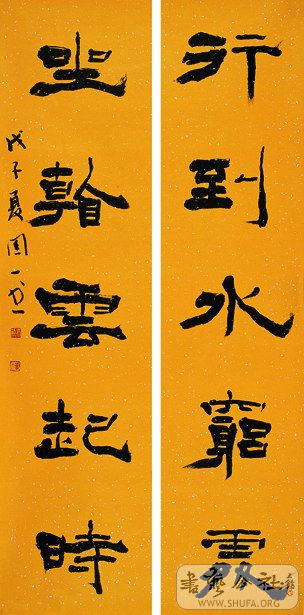 行到水窮處
坐看雲起時
戊子夏
書藝公社
WWW.SHUFA.ORG